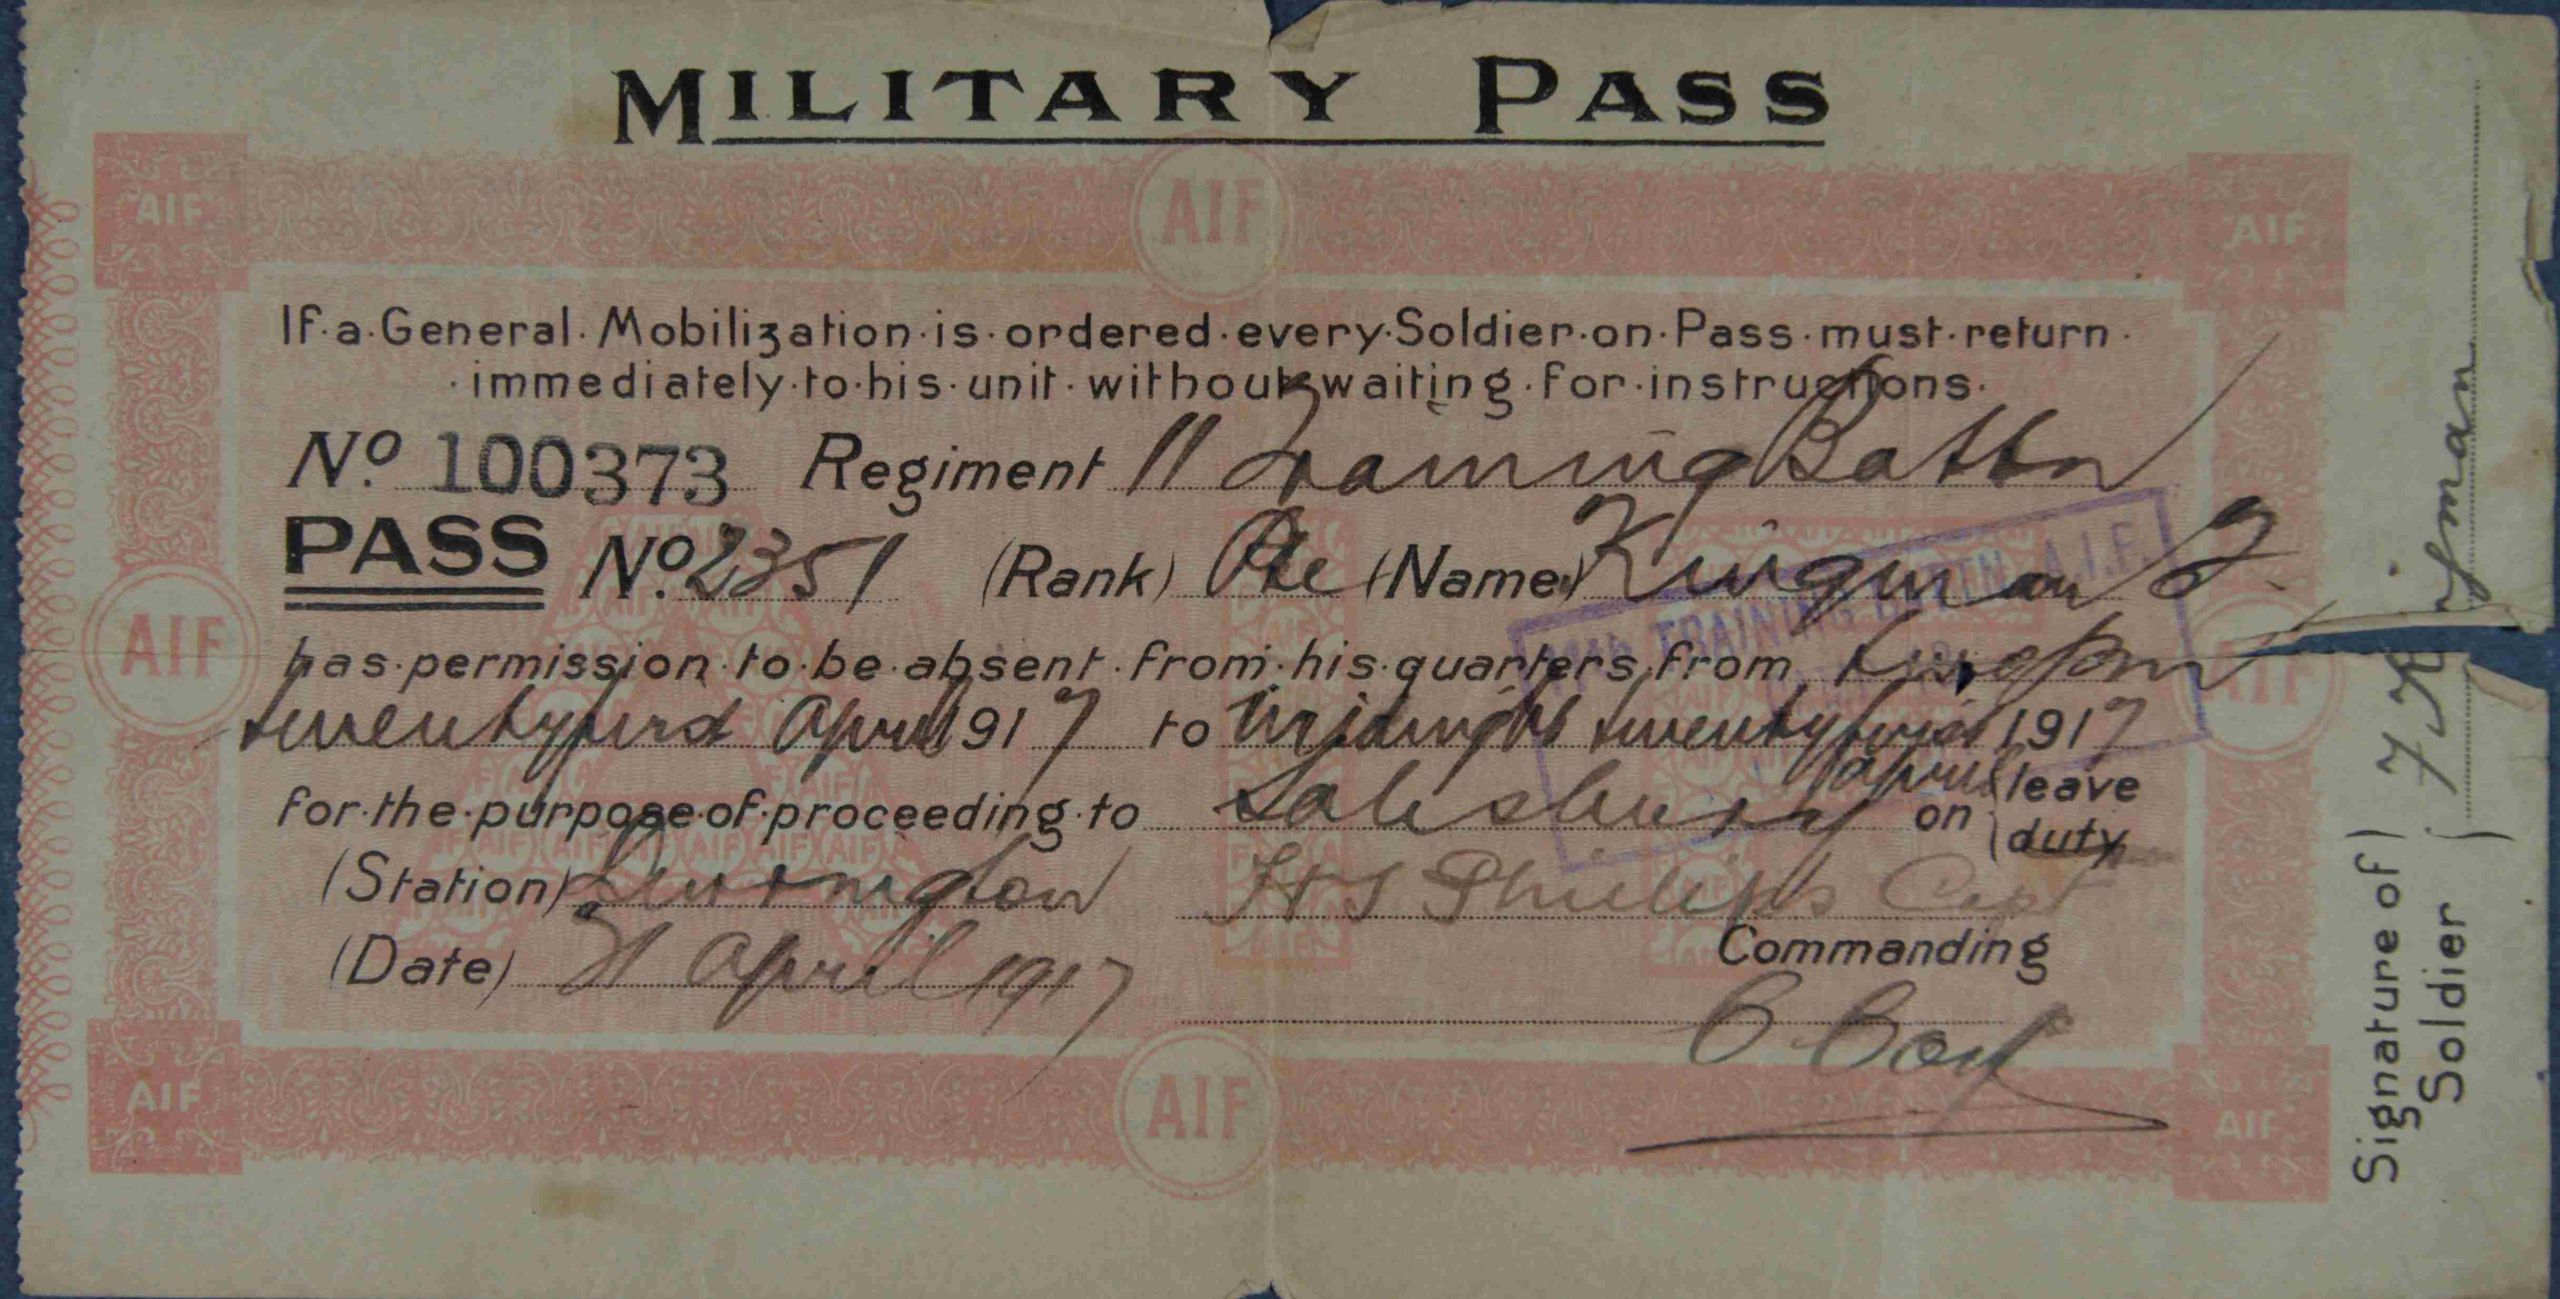 MILITARY PASS
AIF AIF AIF
If a General Mobilization is ordered every Soldier on Pass must return
immediately to his unit without waiting for instructions.
No. 100373 Regiment 11 Training Battn
PASS No. 2351 (Rank) Pte (Name) Kingman F
TRAINING BATTN. A.I.F.
has permission to be absent from his quarters from
AIF AIF
twentyfirst April 1917 to Midnight twentyfirst 1917
April
for the purpose of proceeding to Salisbury on leave
duty
(Station) Durrington H S Phillips Capt
Commanding
(Date) 21 April 1917
AIF AIF AIF
Signature of Soldier F Kingman